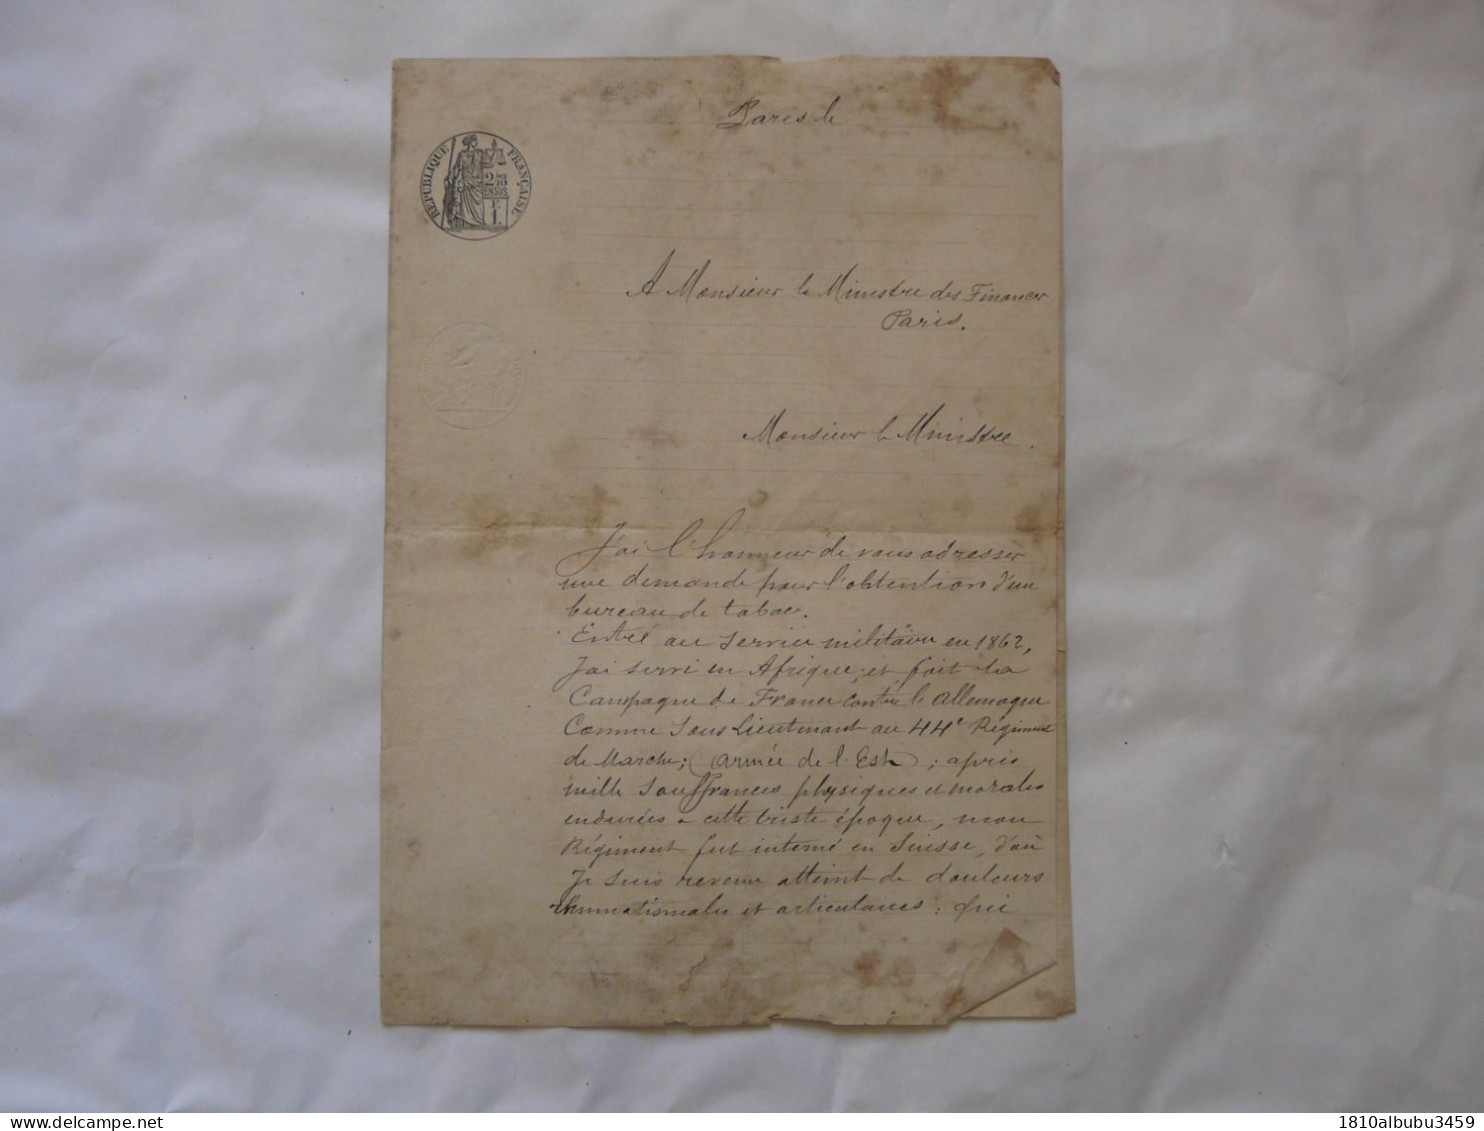 Paris le
RÉPUBLIQUE FRANÇAISE
2/10
EN SUS
1
A Monsieur le Ministre des Finances
Paris.
Monsieur le Ministre.
J'ai l'honneur de vous adresser
une demande pour l'obtention d'un
bureau de tabac.
Entré au service militaire en 1862,
J'ai servi en Afrique, et fait la
Campagne de France contre l'allemagne
Comme Sous lieutenant au 44e Régiment
de Marche; (armée de l'Est); après
mille Souffrances physiques et morales
endurées a cette triste époque, mon
Régiment fut interné en Suisse, d'où
Je suis revenu atteint de douleurs
rhumatismales et articulaires; qui
1810albubu3459